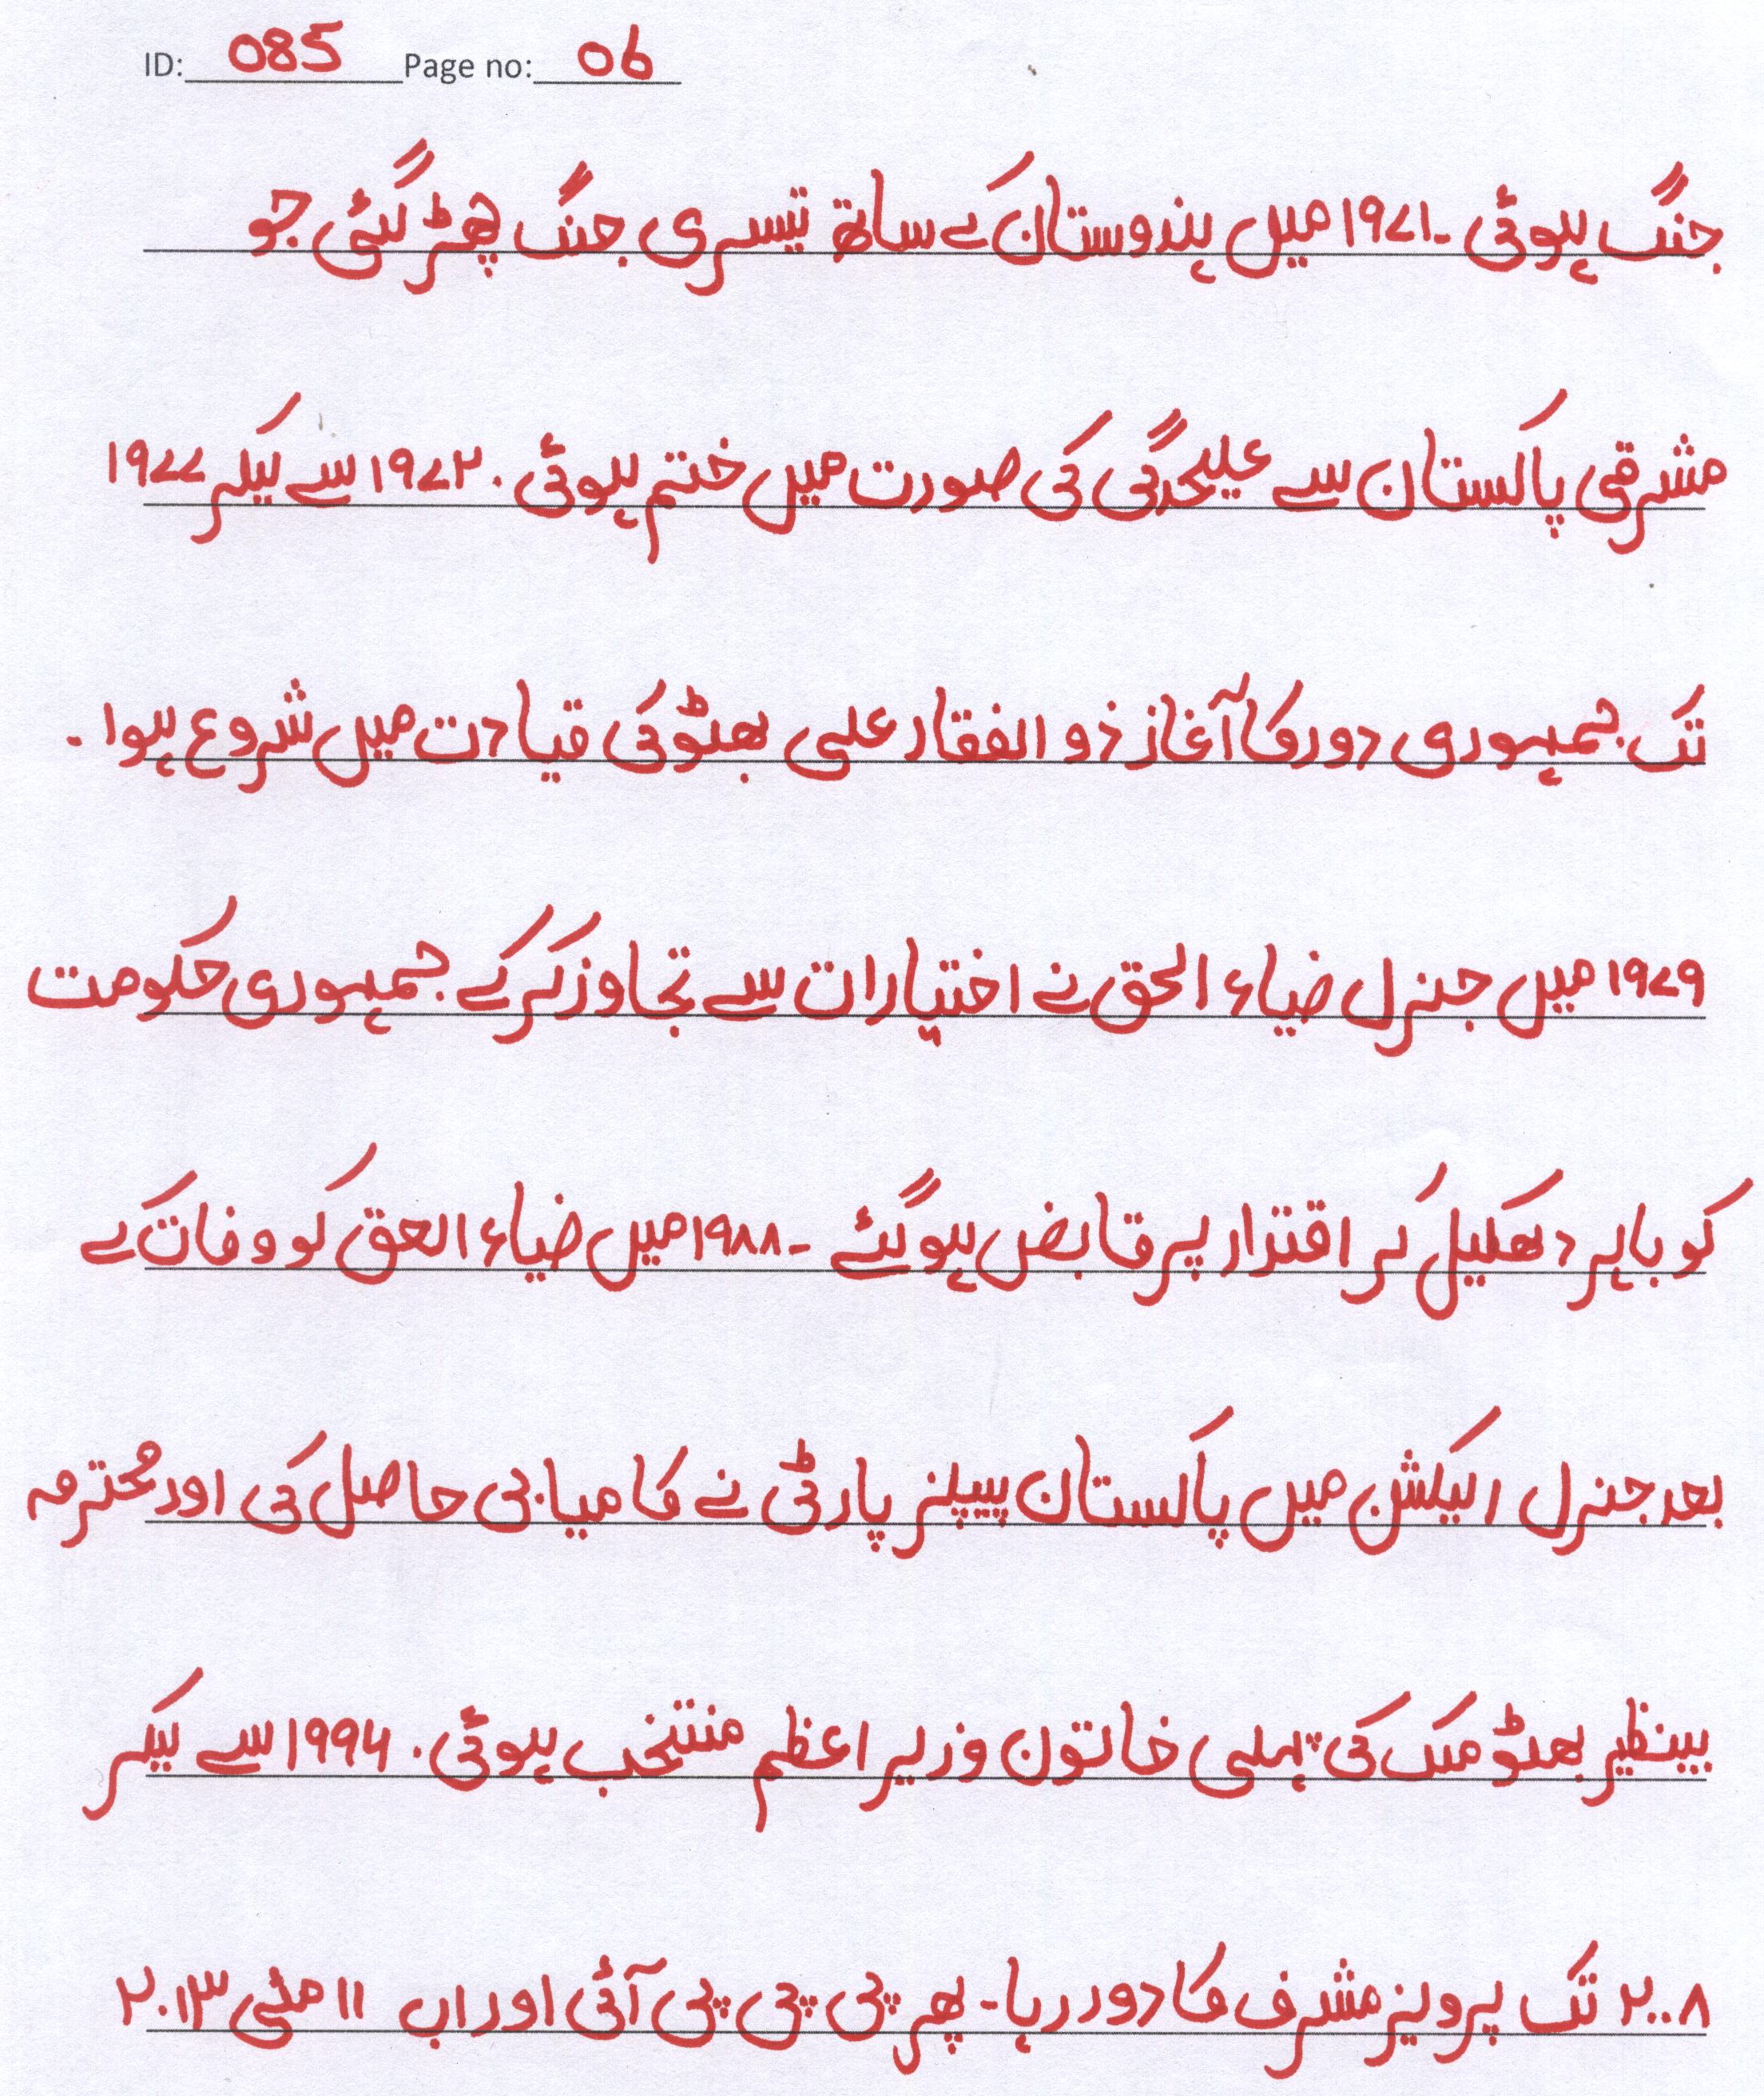 ID: 085 Page no: 06
جنگ ہوئی ۔ ۱۹۷۱ میں ہندوستان کے ساتھ تیسری جنگ چھڑ گئی جو
مشرقی پاکستان سے علیحدگی کی صورت میں ختم ہوئی ۔ ۱۹۷۲ سے لیکر ۱۹۷۷
تک جمہوری دور کا آغاز ذو الفقار علی بھٹو کی قیادت میں شروع ہوا ۔
۱۹۷۹ میں جنرل ضیاء الحق نے اختیارات سے تجاوز کر کے جمہوری حکومت
کو باہر دھکیل کر اقتدار پر قابض ہو گئے ۔ ۱۹۸۸ میں ضیاء الحق کو وفات کے
بعد جنرل الیکشن میں پاکستان پیپلز پارٹی نے کامیابی حاصل کی اور محترمہ
بینظیر بھٹو ملک کی پہلی خاتون وزیر اعظم منتخب ہوئی ۔ ۱۹۹۴ سے لیکر
۲۰۰۸ تک پرویز مشرف کا دور رہا ۔ پھر پی پی پی آئی اور اب ۱۱ مئی ۲۰۱۳